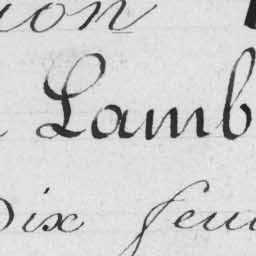 ion
Lamb
Dix feu